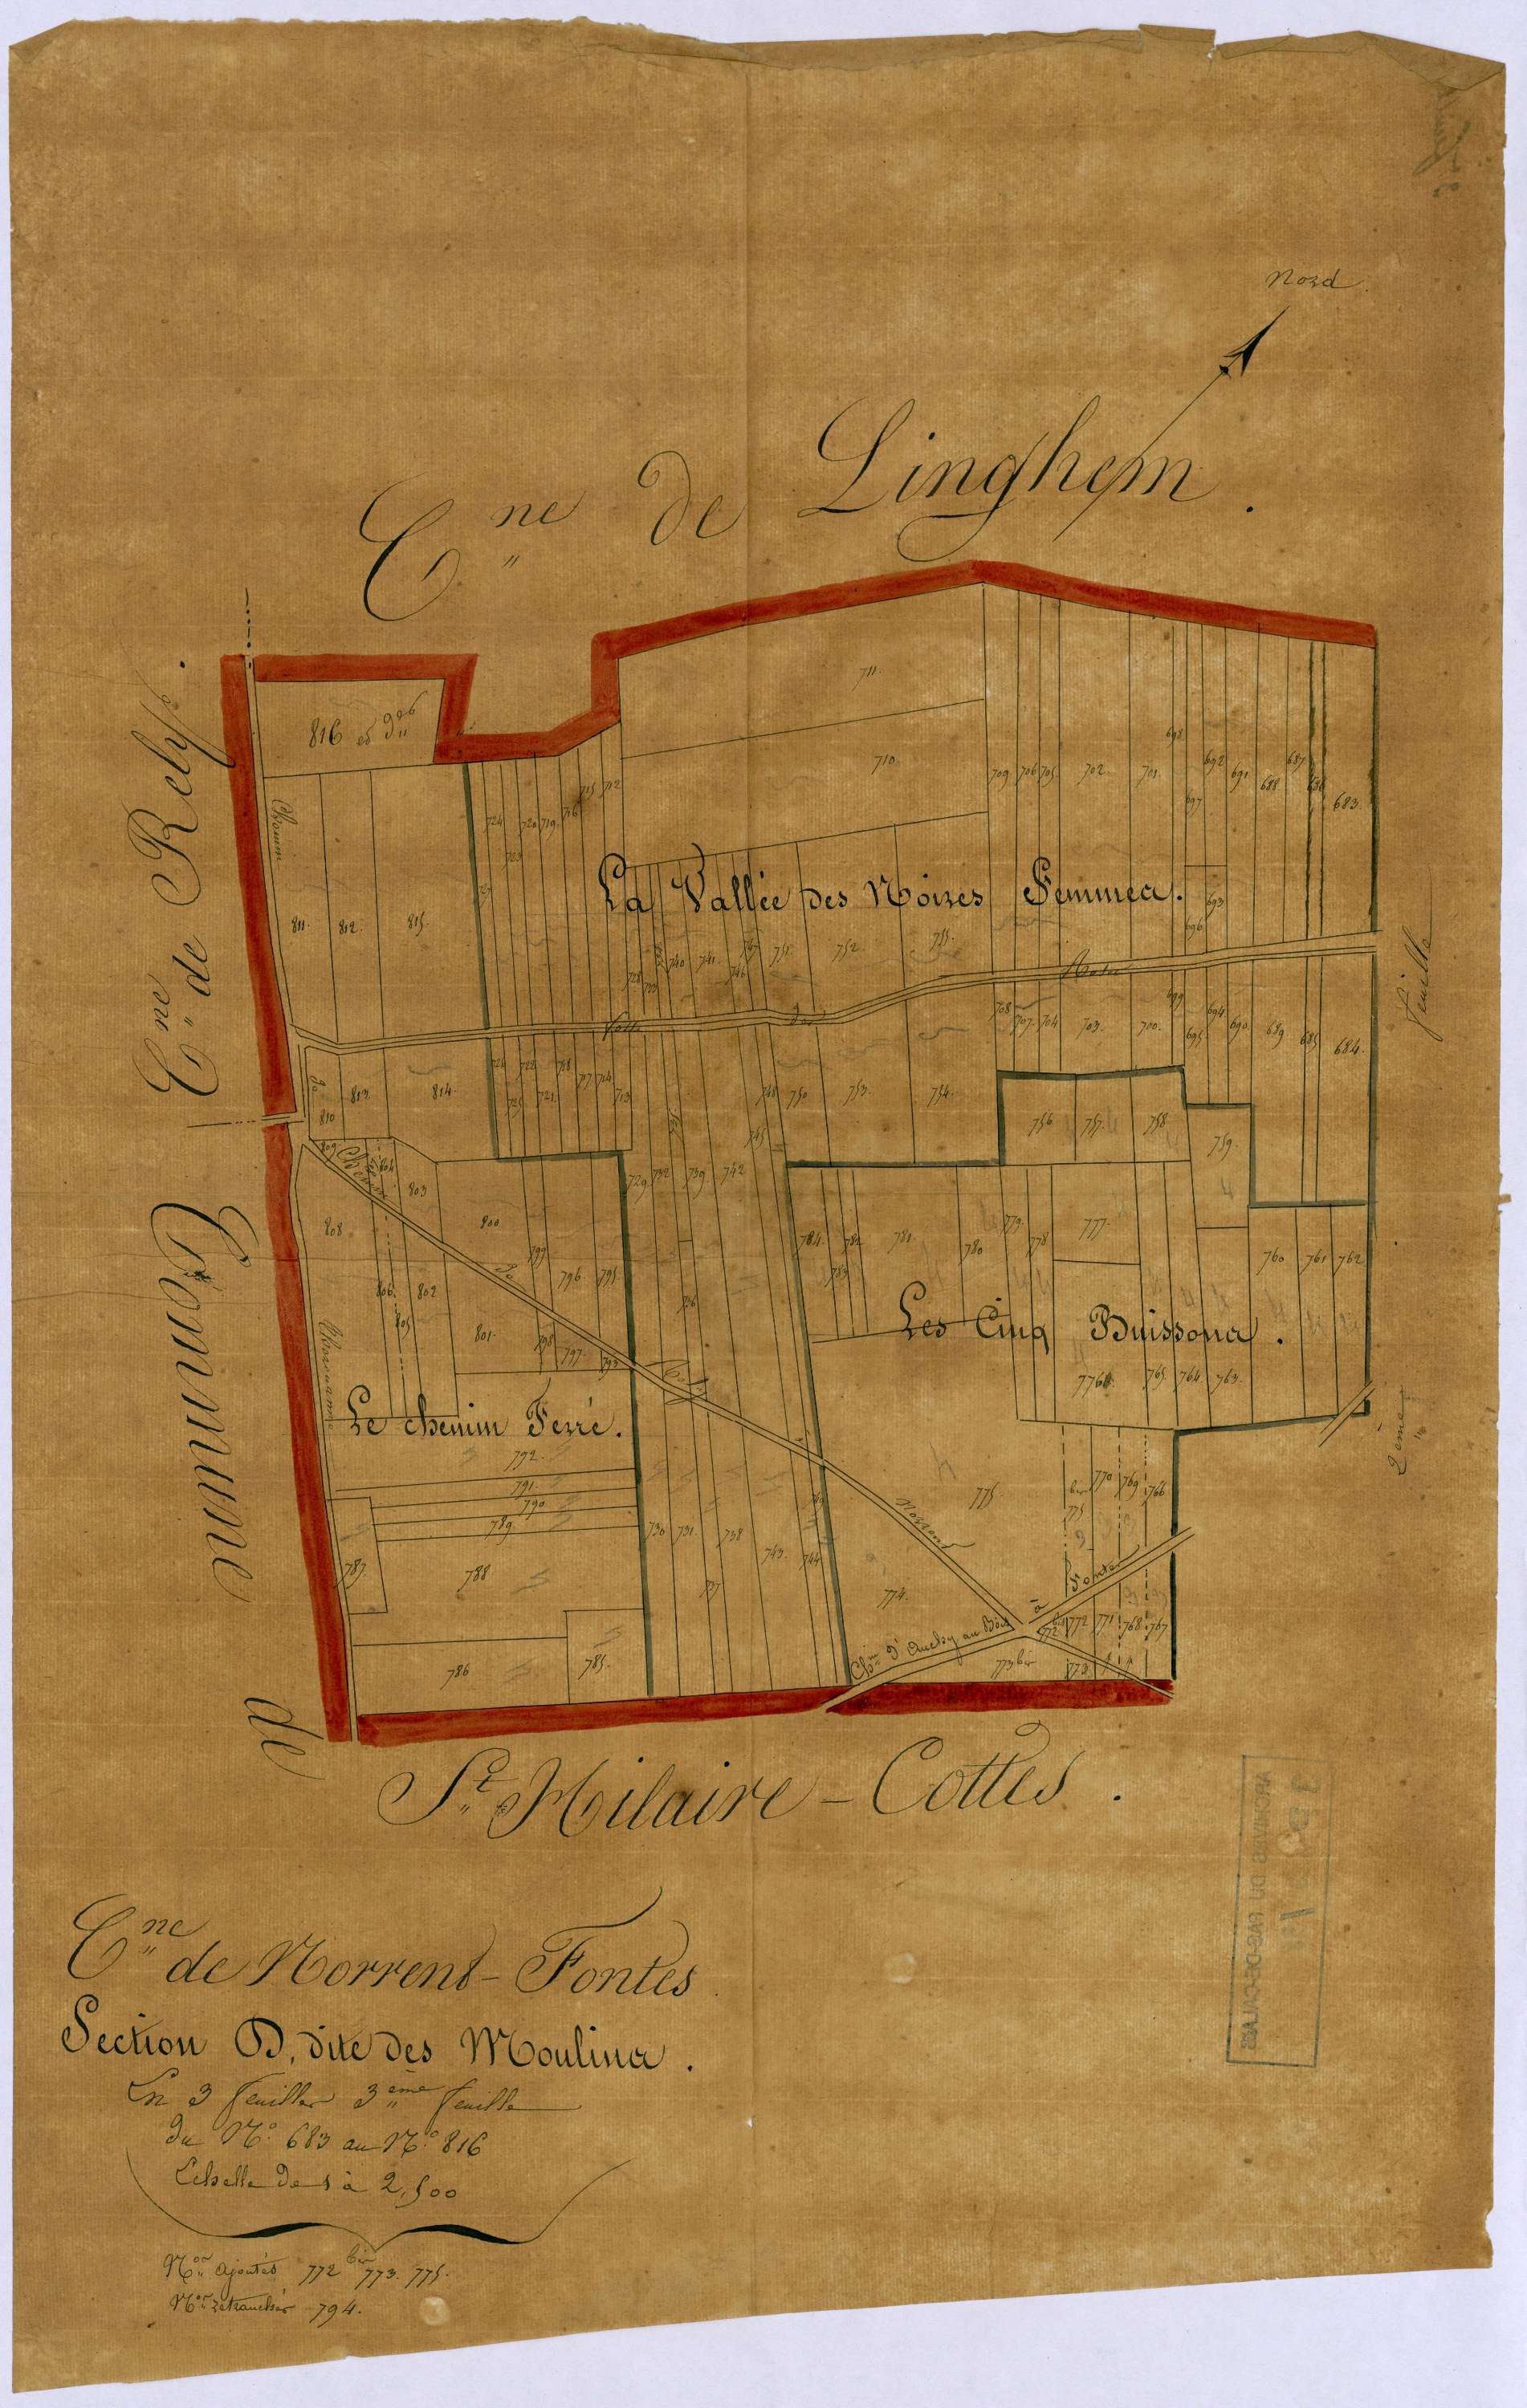 Nord
C.ne de Linghem.
C.ne de Rely.
816 et d.
711.
710.
709. 706 705. 702. 701. 698 697 692 691 688 687 686 683.
724 723 720 719. 716 715 712
La Vallée des Noires Femmes.
811. 812. 815.
728 740 741. 746 747 751. 752. 755.
696 693
feuille
708 707. 704 703. 700. 699 695 694 690. 689. 685 684.
810 813. 814.
725 722 721. 718 717 714 713.
748 750 753. 754.
756 757. 758 759.
809 804 803
729 732 739. 742 745
808. 800 799 796 795
784. 783 782 781. 780 779. 778 777.
760 761 762
806. 805 802 801. 798 797. 793
736
Les Cinq Buissons.
776. 765. 764. 763.
Commune
Le chemin Ferré.
792.
791.
790
789
787. 788
730 731. 738 743. 744
737
775 bis 775 770 769 766
Norrent
774.
Fontes
à
Ch.in d'Auchy au Bois
772 bis 772 771 768. 767
773 bis 773
786 785.
2ème
de
St Hilaire - Cottes.
C.ne de Norrent-Fontes
Section D, dite des Moulins.
En 3 feuilles 3ème feuille
du N° 683 au N° 816
Echelle de 1 à 2,500
N.os ajoutés 772 bis 773. 775.
N.os retranchés 794.
ARCHIVES DU PAS-DE-CALAIS